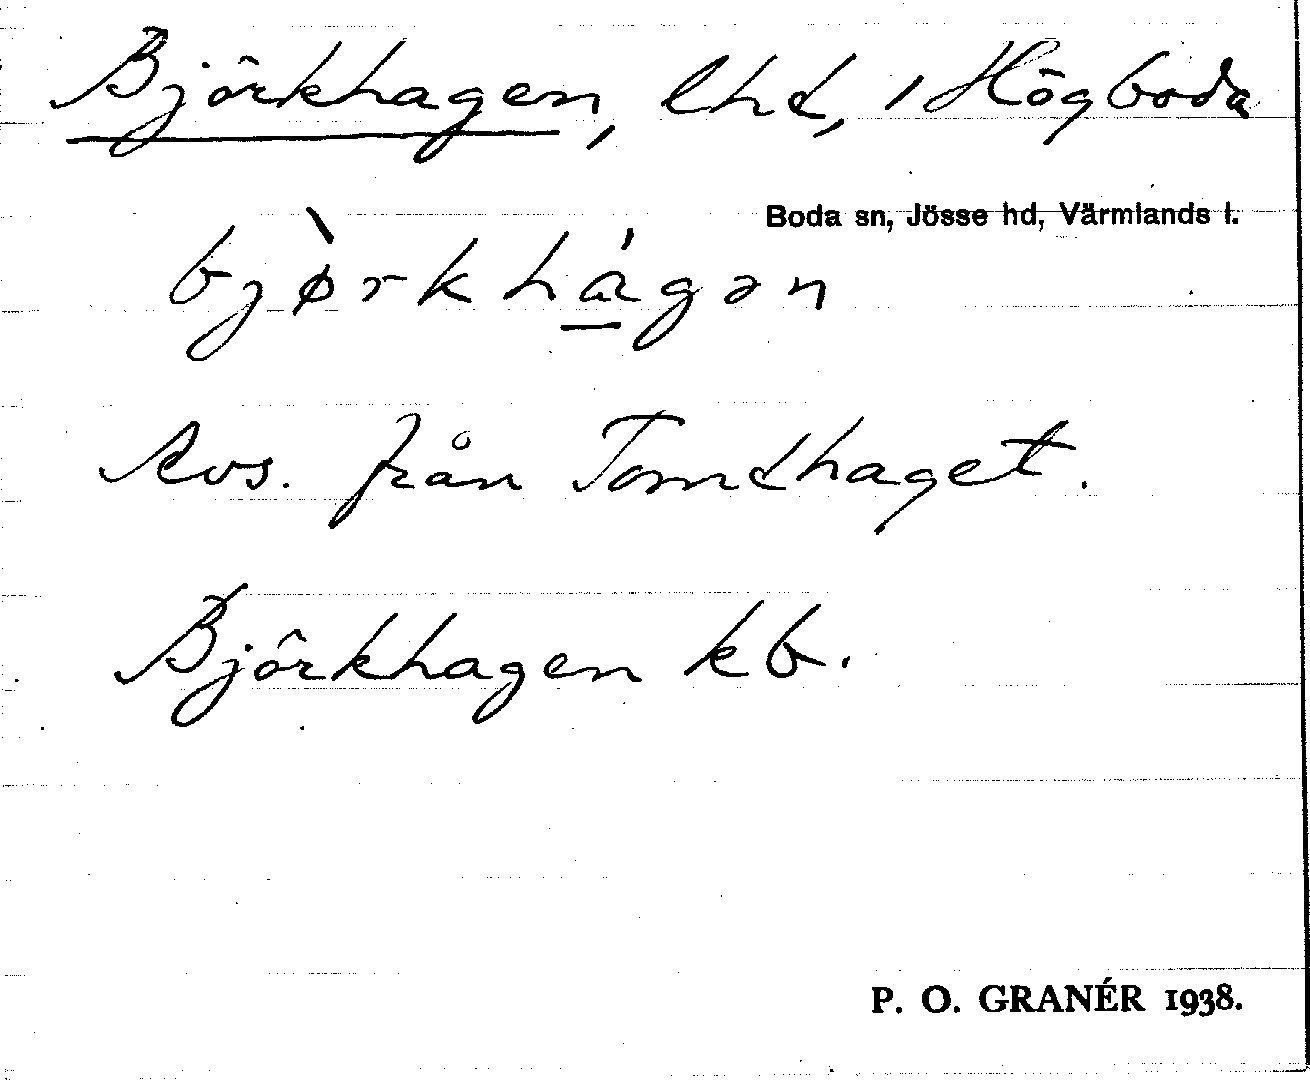 Björkhagen, lhd, i Högboda
Boda sn, Jösse hd, Värmlands l.
bjø̀rkhá̱gən
Avs. från Tomthaget.
Björkhagen kb.
P. O. GRANÉR 1938.